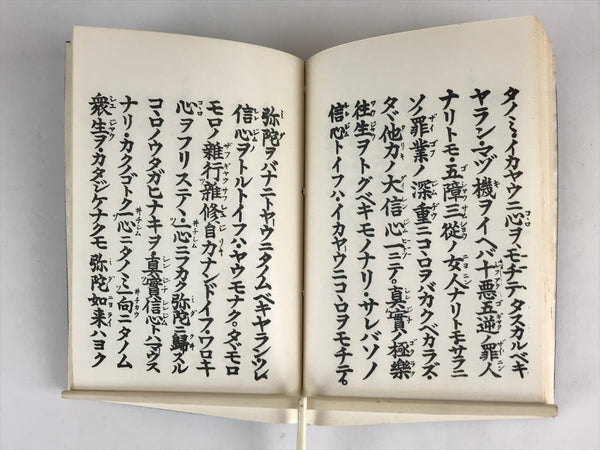 タノミ・イカヤウニ心ヲモチテ・タスカルベキ
ヤラン・マヅ機ヲイヘバ十悪五逆ノ罪人
ナリトモ・五障三從ノ女人ナリトモサラニ
ソノ罪業ノ深重ニコヽロヲバカクベカラズ・
タヾ他力ノ大信心一ニテ。真實ノ極樂
往生ヲトグベキモノナリ・サレバソノ
信心トイフハ・イカヤウニコヽロヲモチテ。
弥陀ヲバナニトヤウニタノムベキヤラン・ソレ
信心ヲトルトイフハ・ヤウモナク。タヾモロ
モロノ雜行雜修自力ナンドイフ・ワロキ
心ヲフリステヽ・一心ニフカク弥陀ニ歸スル
コヽロノウタガヒナキヲ・真實信心トハマウス
ナリ・カクノゴトク一心ニタノミ一向ニタノム
衆生ヲ・カタジケナクモ弥陀如来ハヨク